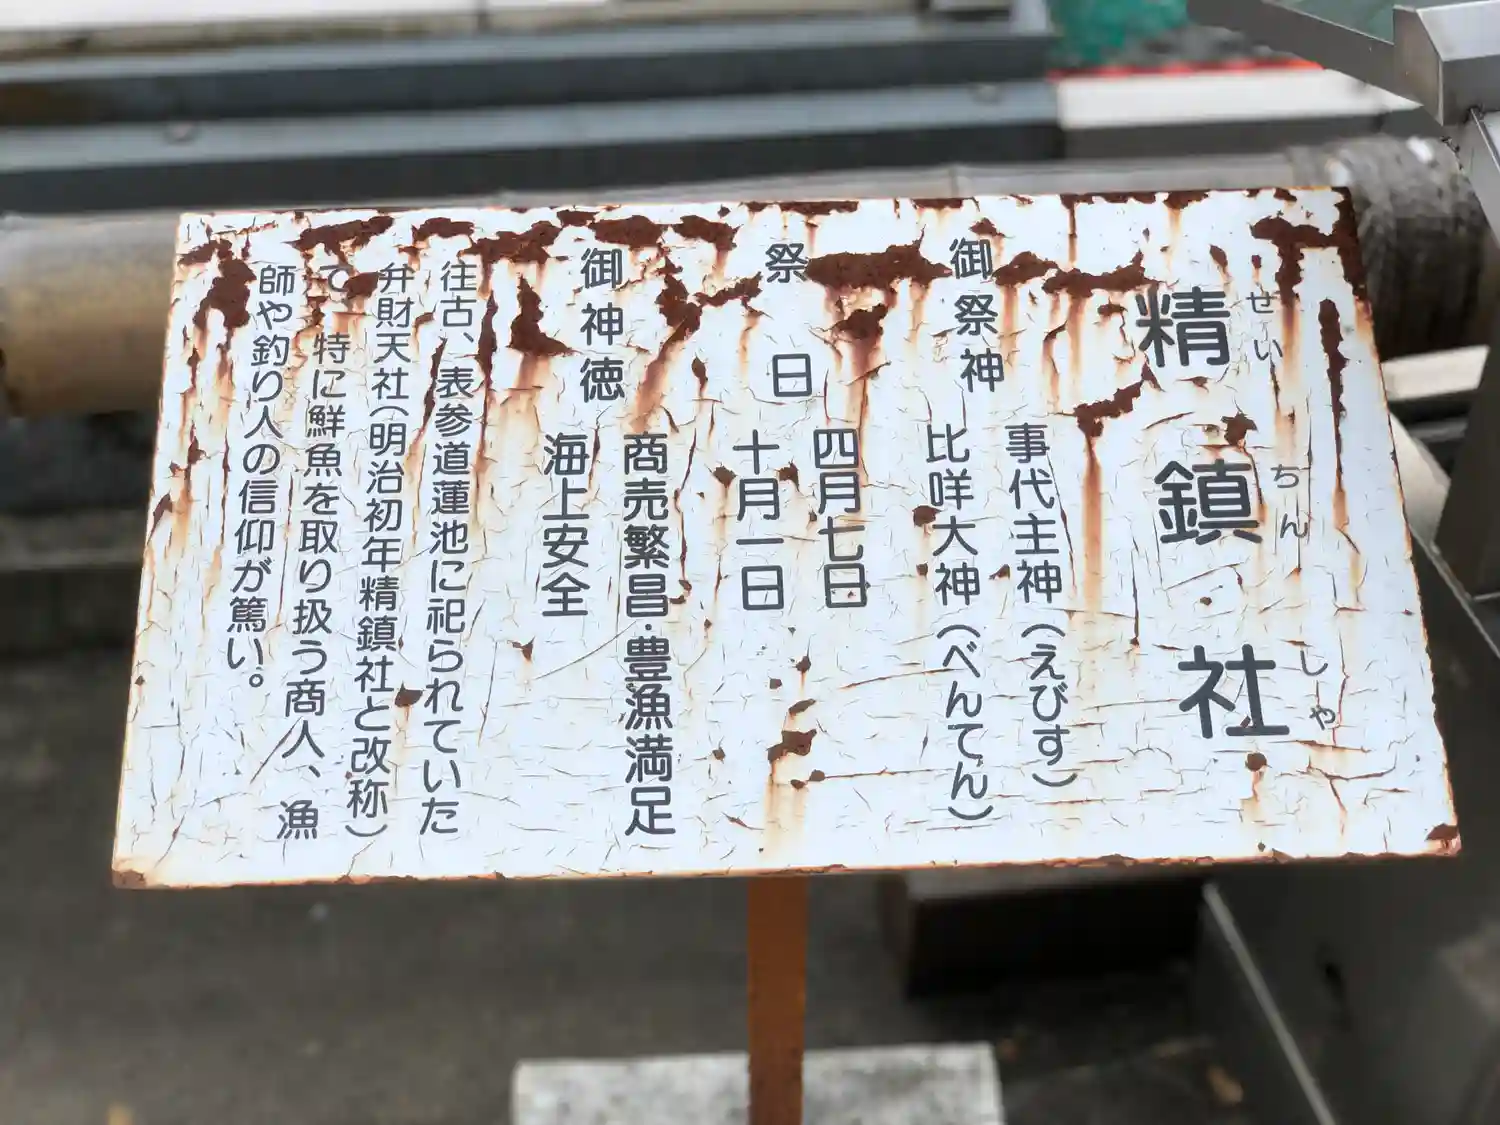 精鎮社
せいちんしゃ
御祭神
事代主神(えびす)
比咩大神(べんてん)
祭日
四月七日
十月一日
御神徳
商売繁昌・豊漁満足
海上安全
往古、表参道蓮池に祀られていた
弁財天社(明治初年精鎮社と改称)
で、特に鮮魚を取り扱う商人、漁
師や釣り人の信仰が篤い。